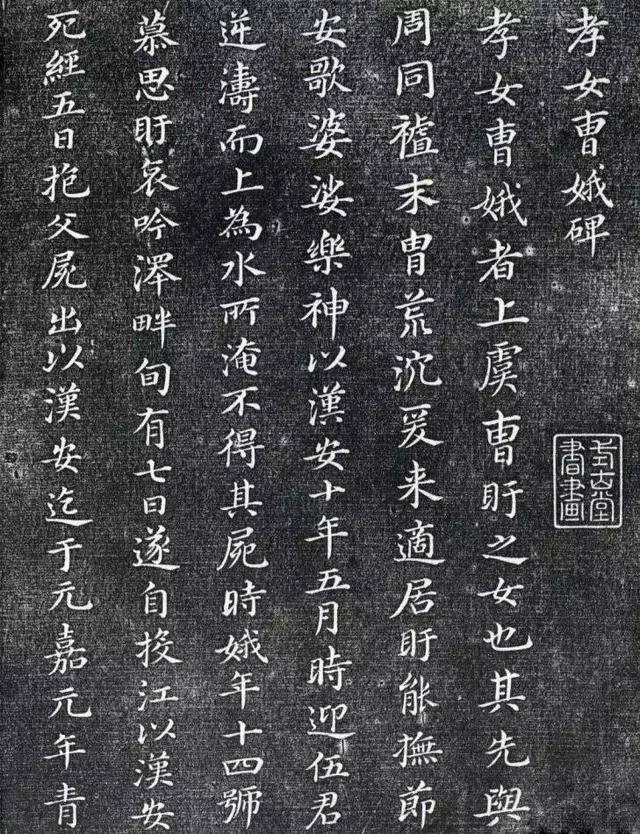 孝女曹娥碑
孝女曹娥者上虞曹盱之女也其先與
周同末胄荒沉爰来適居盱能撫節
安歌婆娑樂神以漢安十年五月時迎伍君
逆濤而上為水所淹不得其屍時娥年十四號
慕思盱哀吟澤畔旬有七日遂自投江以漢安
死經五日抱父屍出以漢安迄于元嘉元年青
式古堂
書畫